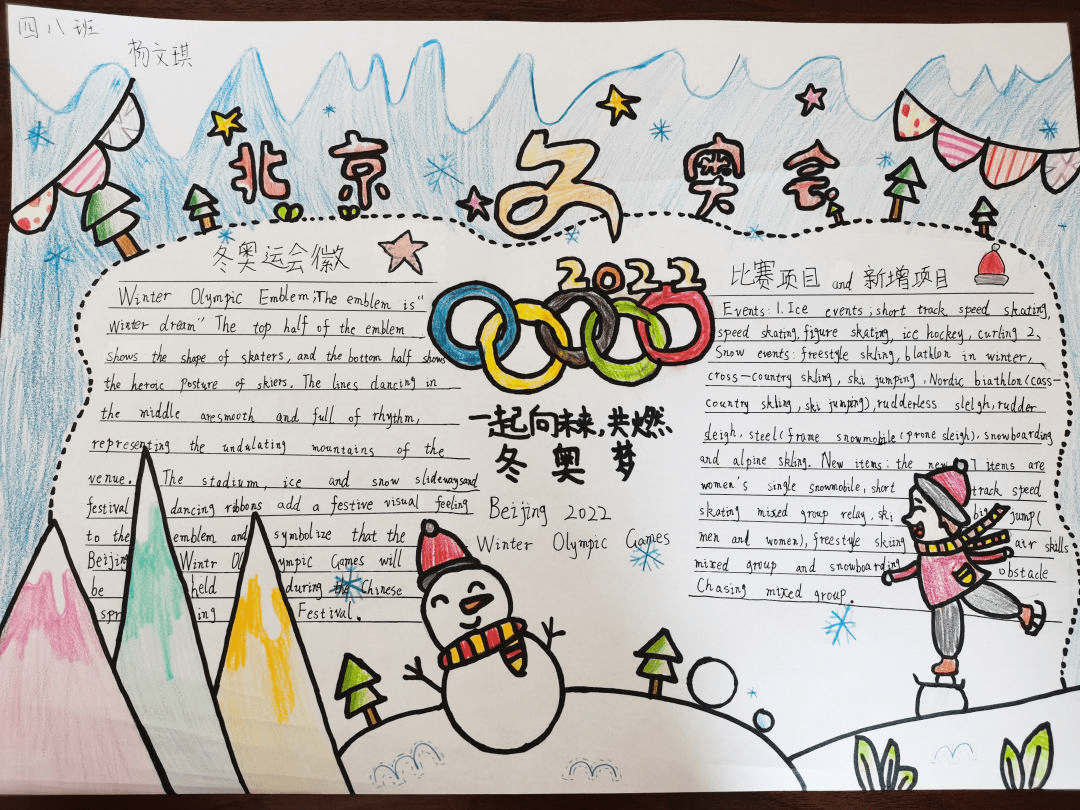 四八班
杨文琪
北京冬奥会
冬奥运会徽
Winter Olympic Emblem;The emblem is"
Winter dream" The top half of the emblem
shows the shape of skaters, and the bottom half shows
the heroic Posture of skiers. The lines dancing in
the middle aresmooth and full of rhythm,
representing the undulating mountains of the
venue. The stadium, ice and snow slidewaysand
festival dancing ribbons add a festive visual feeling
to the emblem and symbolize that the
Beijing Wintr Olympic Games will
be held during the Chinese
spring Festival.
2022
一起向未来,共燃
冬奥梦
Beijing 2022
Winter Olympic Games
比赛项目 and 新增项目
Events: 1. Ice events; short track speed skating,
speed skating, figure skating, ice hockey, curling 2,
Snow events: freestyle skling, blathlon in winter,
cross-country skling, ski jumping, Nordic biathlon(cass-
country skling, ski jumping), rudderless slelgh, rudder
sleigh, steel(frame snowmobile(prone sleigh), snowboarding
and alpine skling. New items: the new 7 items are
women's single snowmobile, short track speed
skating mixed group relay, ski big jump(
men and women), freestyle skiing air skills
mixed group and snowboarding obstacle
Chasing mixed group.